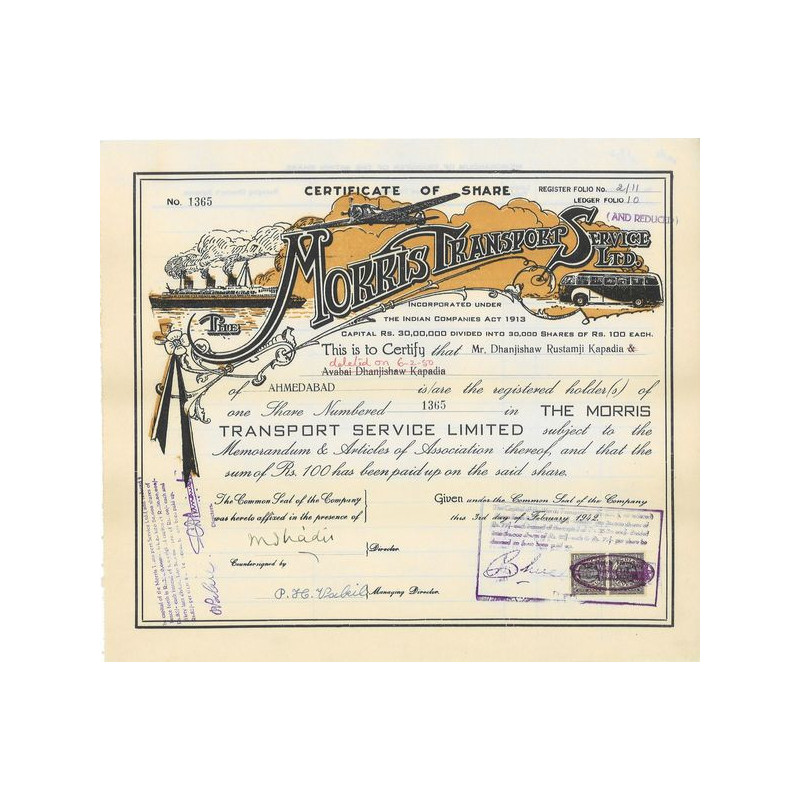 CERTIFICATE OF SHARE
No. 1365
REGISTER FOLIO No. 2/11
LEDGER FOLIO 10
(AND REDUCED)
THE MORRIS TRANSPORT SERVICE LTD.
INCORPORATED UNDER
THE INDIAN COMPANIES ACT 1913
CAPITAL RS. 30,00,000 DIVIDED INTO 30,000 SHARES OF RS. 100 EACH.
This is to Certify that Mr. Dhanjishaw Rustamji Kapadia &
deleted on 6-2-50
Avabai Dhanjishaw Kapadia
of AHMEDABAD is/are the registered holder(s) of
one Share Numbered 1365 in THE MORRIS
TRANSPORT SERVICE LIMITED subject to the
Memorandum & Articles of Association thereof, and that the
sum of Rs. 100 has been paid up on the said share.
The Common Seal of the Company
was hereto affixed in the presence of
Given under the Common Seal of the Company
this 3rd day of February, 1942.
Director.
Countersigned by
Managing Director.